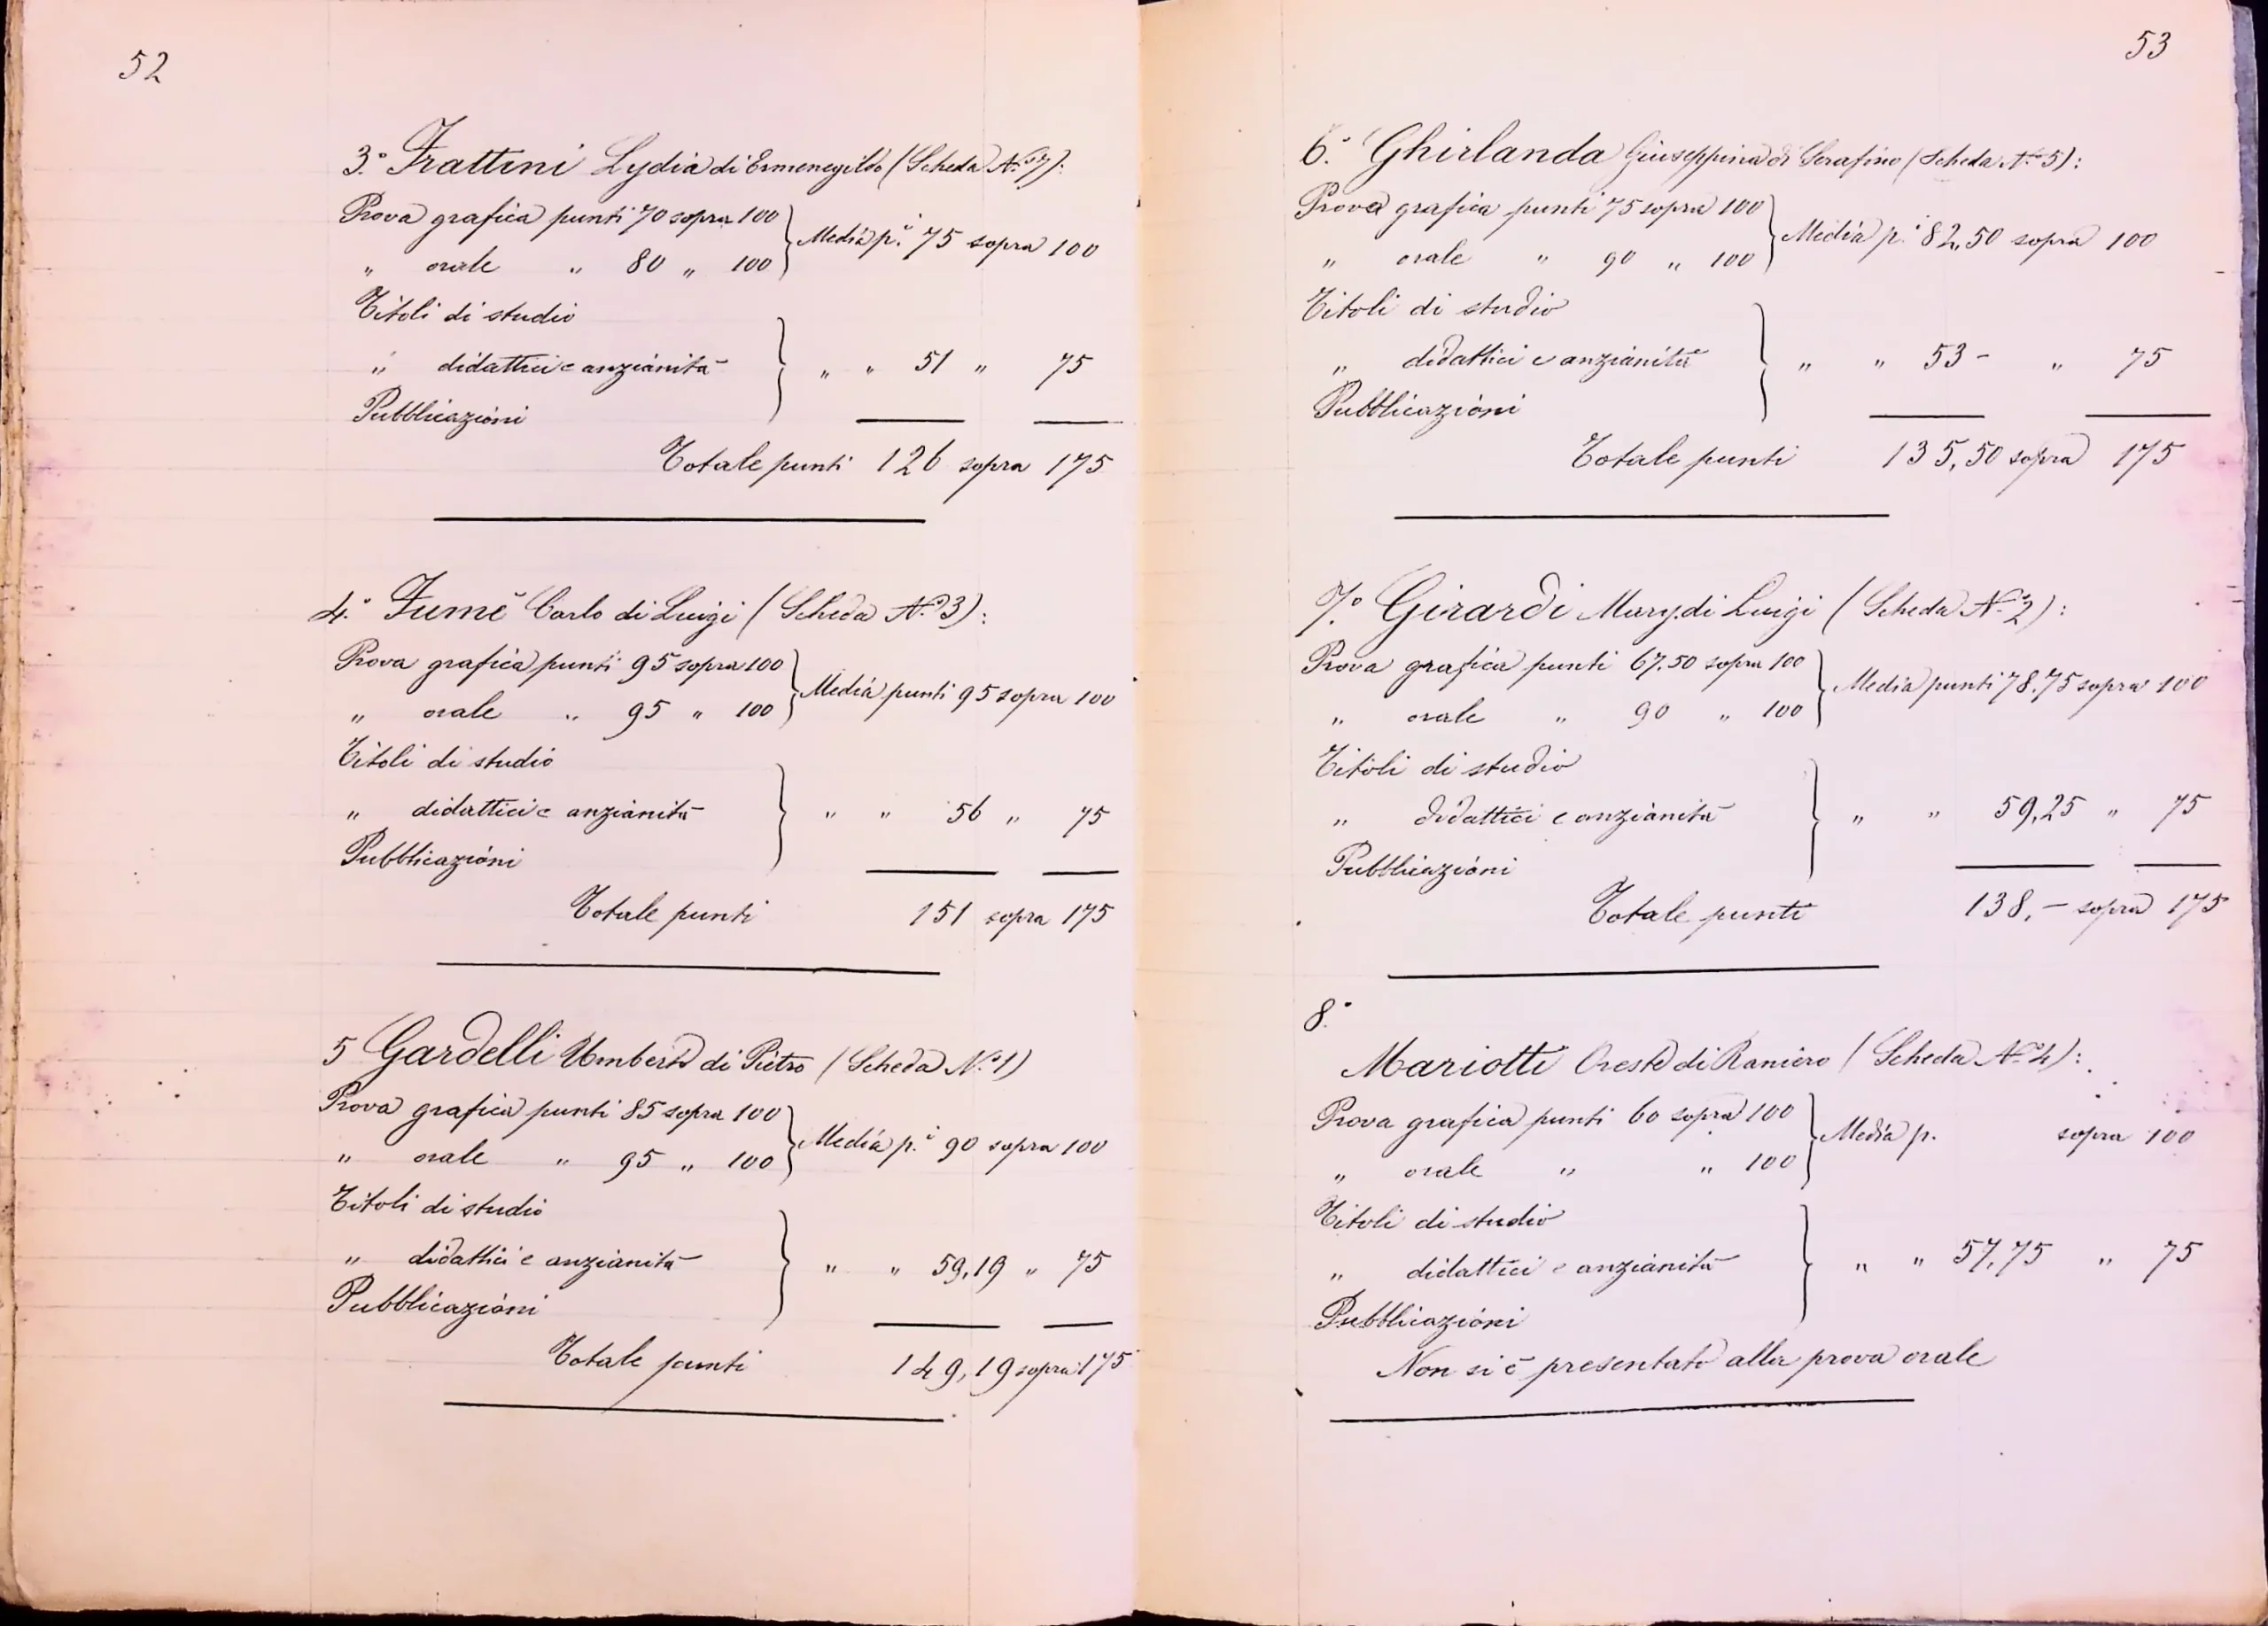 52
3.° Frattini Lydia di Ermenegildo (Scheda N.° 7):
Prova grafica punti 70 sopra 100
Media p.i 75 sopra 100
„ orale „ 80 „ 100
Titoli di studio
„ didattici e anzianità „ „ 51 „ 75
Pubblicazioni
Totale punti 126 sopra 175
4.° Fumé Carlo di Luigi (Scheda N.° 3):
Prova grafica punti 95 sopra 100
Media punti 95 sopra 100
„ orale „ 95 „ 100
Titoli di studio
„ didattici e anzianità „ „ 56 „ 75
Pubblicazioni
Totale punti 151 sopra 175
5 Gardelli Umberto di Pietro (Scheda N.° 1)
Prova grafica punti 85 sopra 100
Media p.i 90 sopra 100
„ orale „ 95 „ 100
Titoli di studio
„ didattici e anzianità „ „ 59,19 „ 75
Pubblicazioni
Totale punti 149,19 sopra 175
53
6.° Ghirlanda Giuseppina di Serafino (Scheda N.° 5):
Prova grafica punti 75 sopra 100
Media p.i 82,50 sopra 100
„ orale „ 90 „ 100
Titoli di studio
„ didattici e anzianità „ „ 53 - „ 75
Pubblicazioni
Totale punti 135,50 sopra 175
7.° Girardi Mary di Luigi (Scheda N.° 2):
Prova grafica punti 67.50 sopra 100
Media punti 78.75 sopra 100
„ orale „ 90 „ 100
Titoli di studio
„ didattici e anzianità „ „ 59,25 „ 75
Pubblicazioni
Totale punti 138,- sopra 175
8.°
Mariotti Oreste di Raniero (Scheda N.° 4):
Prova grafica punti 60 sopra 100
Media p. sopra 100
„ orale „ „ 100
Titoli di studio
„ didattici e anzianità „ „ 57,75 „ 75
Pubblicazioni
Non si è presentato alla prova orale